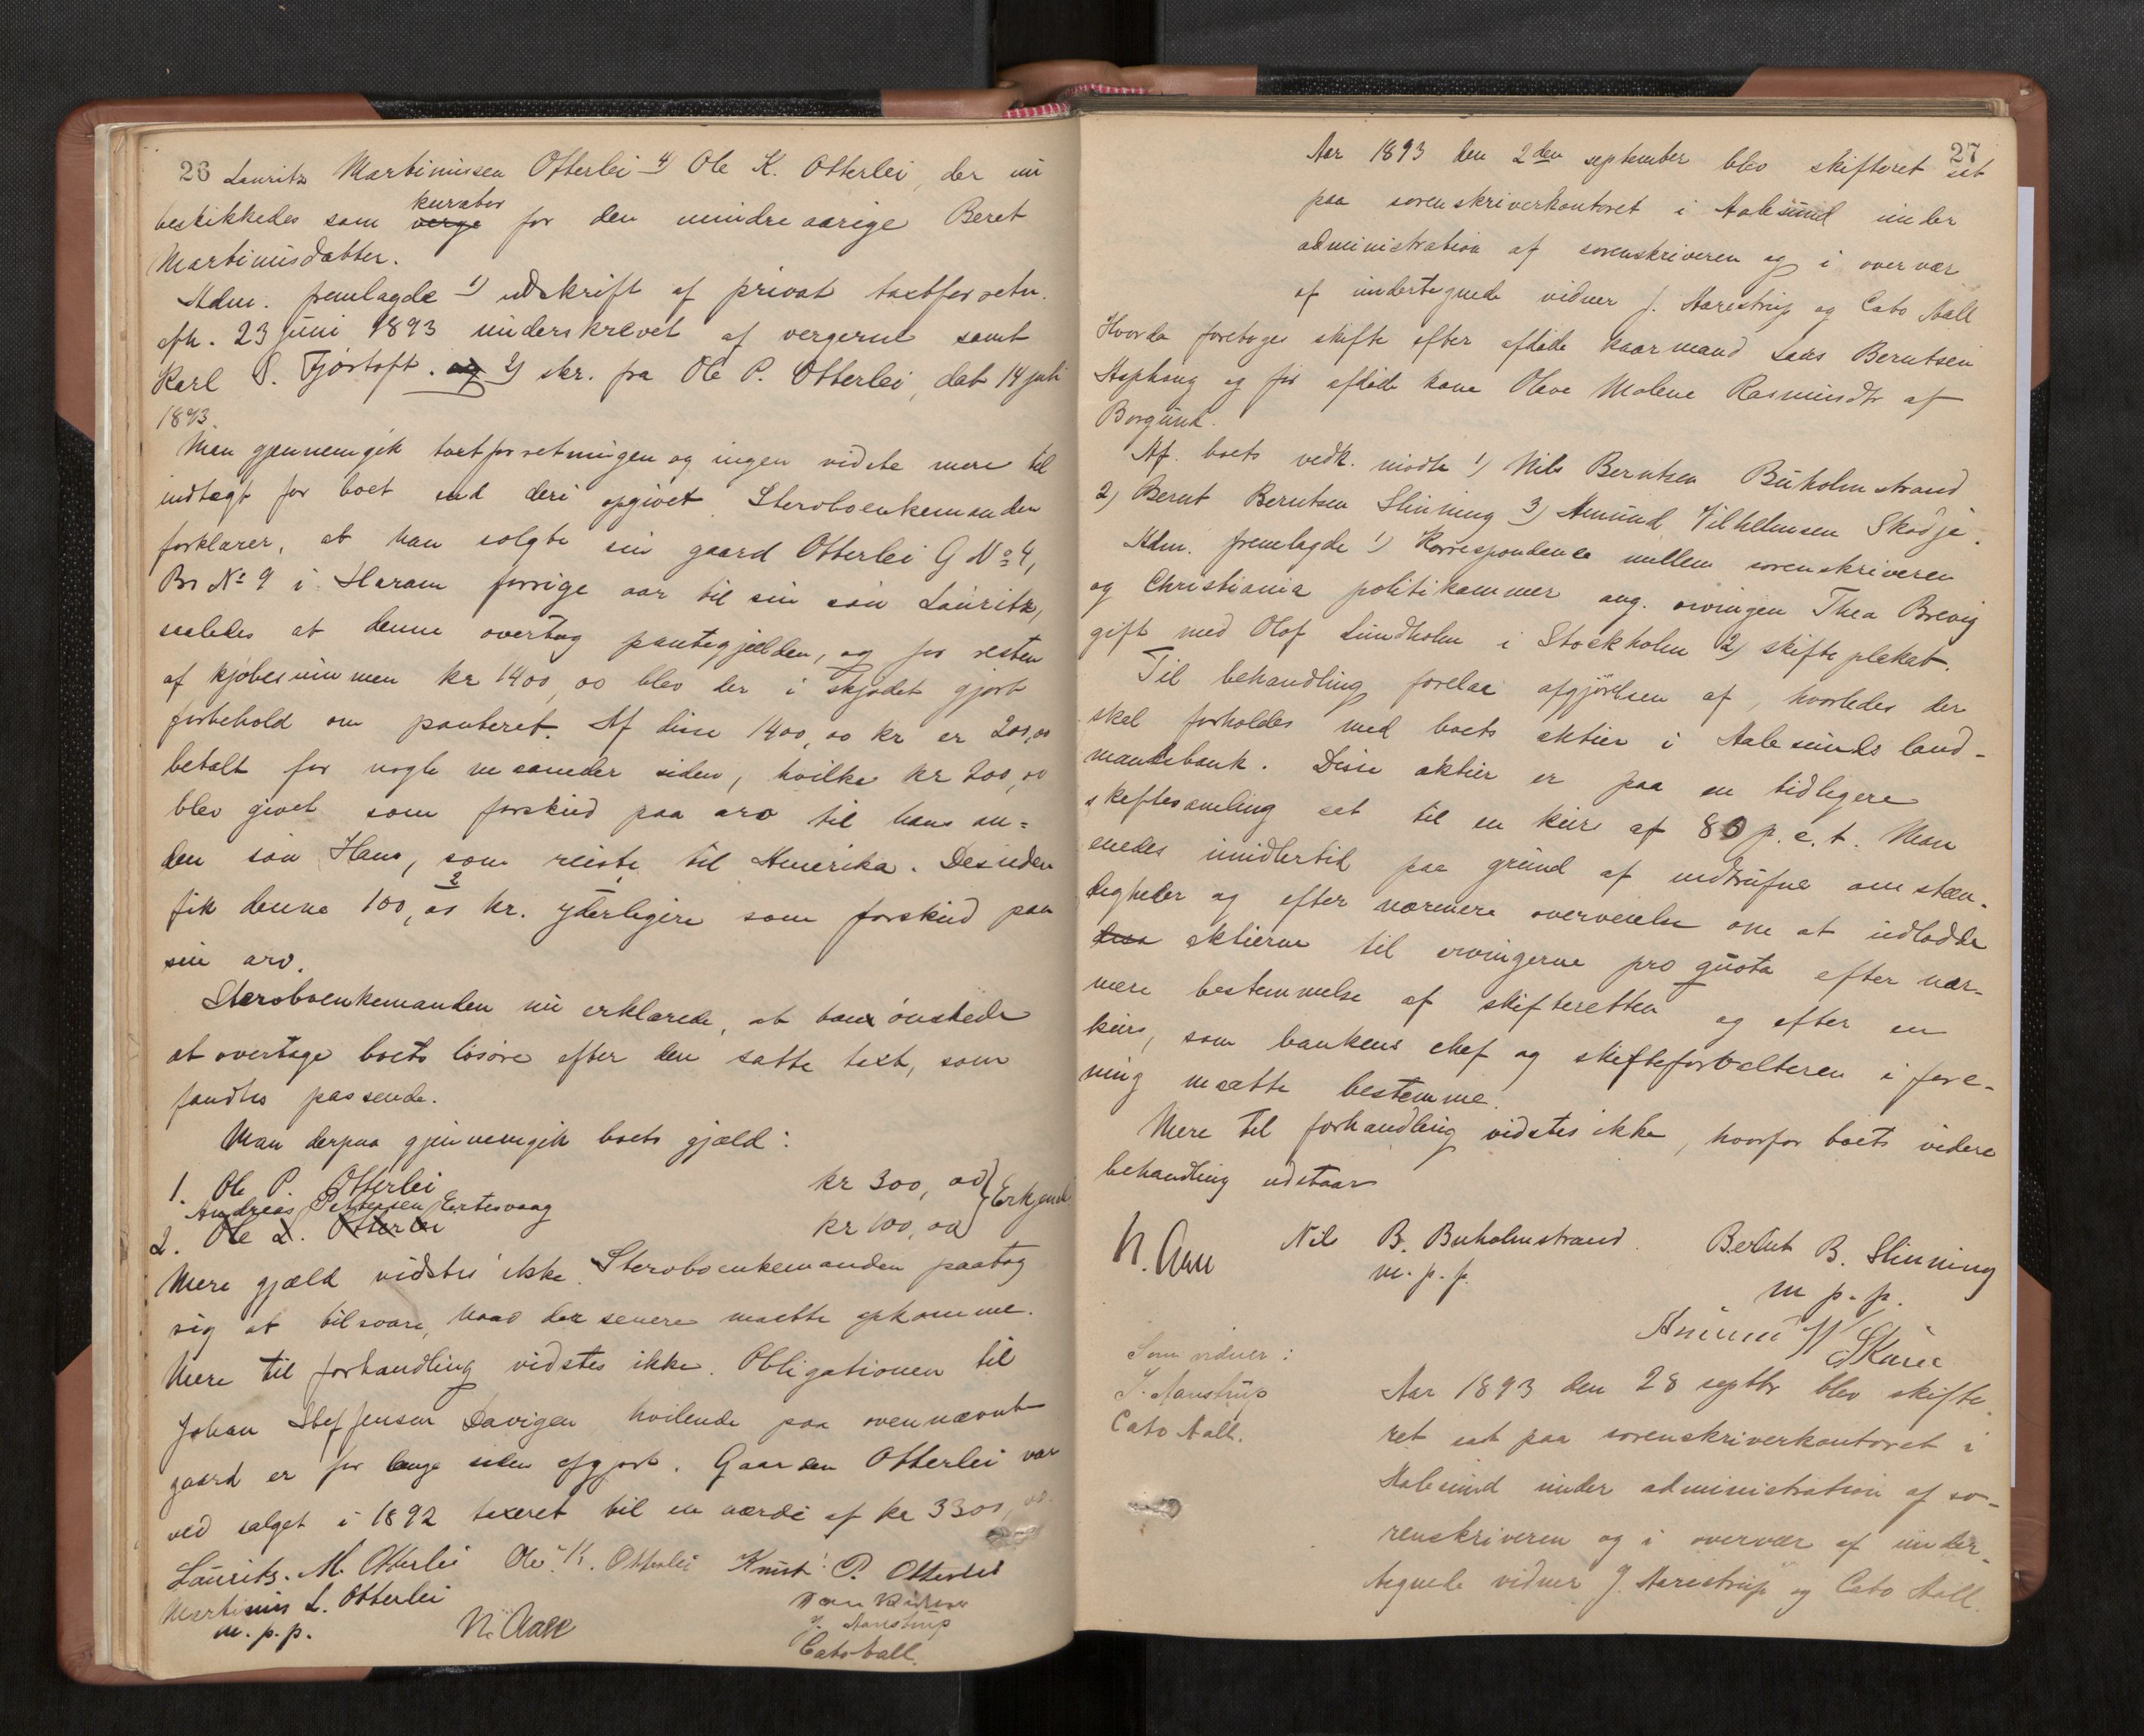 26 Lauritz Martinussen Otterlei 4) Ole K. Otterlei, der nu
kurator
beskikkedes som verge for den mindreaarige Beret
Martinusdatter.
Adm. fremlagde 1) udskrift af privat taxtforretn.
afh. 23 juni 1893 underskrevet af vergerne samt
Karl P. Fjørtoft. og 2) skr. fra Ole P. Otterlei, dat 14 juli
1893.
Man gjennemgik taxtforretningen og ingen vidste mere til
indtægt for boet end deri opgivet. Sterboenkemanden
forklarer, at han solgte sin gaard Otterlei G No 4,
Br No 9 i Haram forrige aar til sin søn Lauritz,
saaledes at denne overtog pantegjælden, og for resten
af kjøbesummen kr 1400,00 blev der i skjødet gjort
forbehold om panteret. Af disse 1400,00 kr er 200,00
betalt for nogle maaneder siden, hvilke kr 200,00
blev givet som forskud paa arv til hans an=
den søn Hans, som reiste til Amerika. Desuden
fik denne 100,00 kr. yderligere som forskud paa
sin arv.
Sterboenkemanden nu erklærede, at han ønskede
at overtage boets løsøre efter den satte taxt, som
fandtes passende.
Man derpaa gjennemgik boets gjæld:
1. Ole P. Otterlei kr 300,00 } Erkjendt
Andreas Pettersen Eertesvaag
2. Ole L. Otterlei kr 100,00
Mere gjæld vidstes ikke. Sterboenkemanden paatog
sig at tilsvare, hvad der senere maatte opkomme.
Mere til forhandling vidstes ikke. Obligationen til
Johan Steffensen Davigen hvilende paa ovennævnte
gaard er for længe siden afgjort. Gaarden Otterlei var
ved salget i 1892 taxeret til en værdi af kr 3300,00.
Laurits. M. Otterlei Ole K. Otterlei Knut P. Otterlei
Martinus L. Otterlei
m. p. p. N. Aall
Som vidner
J. Aarestrup
Cato Aall.
27
Aar 1893 den 2den september blev skifteret sat
paa sorenskriverkontoret i Aalesund under
administration af sorenskriveren og i overvær
af undertegnede vidner J. Aarestrup og Cato Aall
Hvorda foretoges skifte efter afdøde kaarmand Lars Berntsen
Asphaug og før afdøde kone Olave Malene Rasmusdtr af
Borgund.
Af boets vedk. mødte 1) Nils Berntsen Buholmstrand
2) Bernt Berntsen Slinning 3) Amund Vilhelmsen Skodje.
Adm. fremlagde 1) Korrespondence mellem sorenskriveren
og Christiania politikammer ang. arvingen Thea Brevig
gift med Olof Lundholm i Stockholm 2) skifteplakat.
Til behandling forelaa afgjørelsen af, hvorledes der
skal forholdes med boets aktier i Aalesunds land-
mandsbank. Disse aktier er paa en tidligere
skiftesamling sat til en kurs af 80 p.c.t. Man
enedes imidlertid paa grund af indtrufne omstæn-
digheder og efter nærmere overveielse om at udlodde
aktierne til arvingerne pro quota efter nær-
mere bestemmelse af skifteretten og efter en
kurs, som bankens chef og skifteforvalteren i fore-
ning maatte bestemme.
Mere til forhandling vidstes ikke, hvorfor boets videre
behandling udstaar
N. Aall Nils B. Buholmstrand. Bernt B. Slinning
m. p. p. m p. p.
Amund V Skare
Som vidner:
J. Aarestrup
Cato Aall.
Aar 1893 den 28 septbr blev skifte-
ret sat paa sorenskriverkontoret i
Aalesund under administration af so-
renskriveren og i overvær af under-
tegnede vidner J. Aarestrup og Cato Aall.